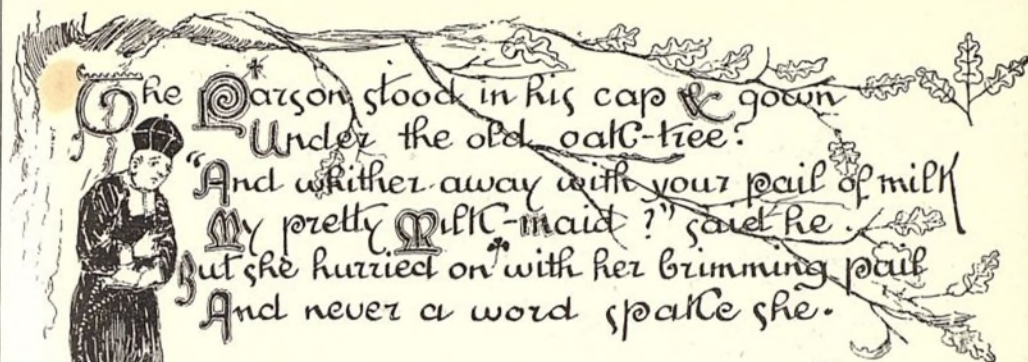 The Parson stood in his cap & gown
Under the old oak-tree:
"And whither away with your pail of milk
My pretty Milk-maid?" said he.
But she hurried on with her brimming pail
And never a word spake she.